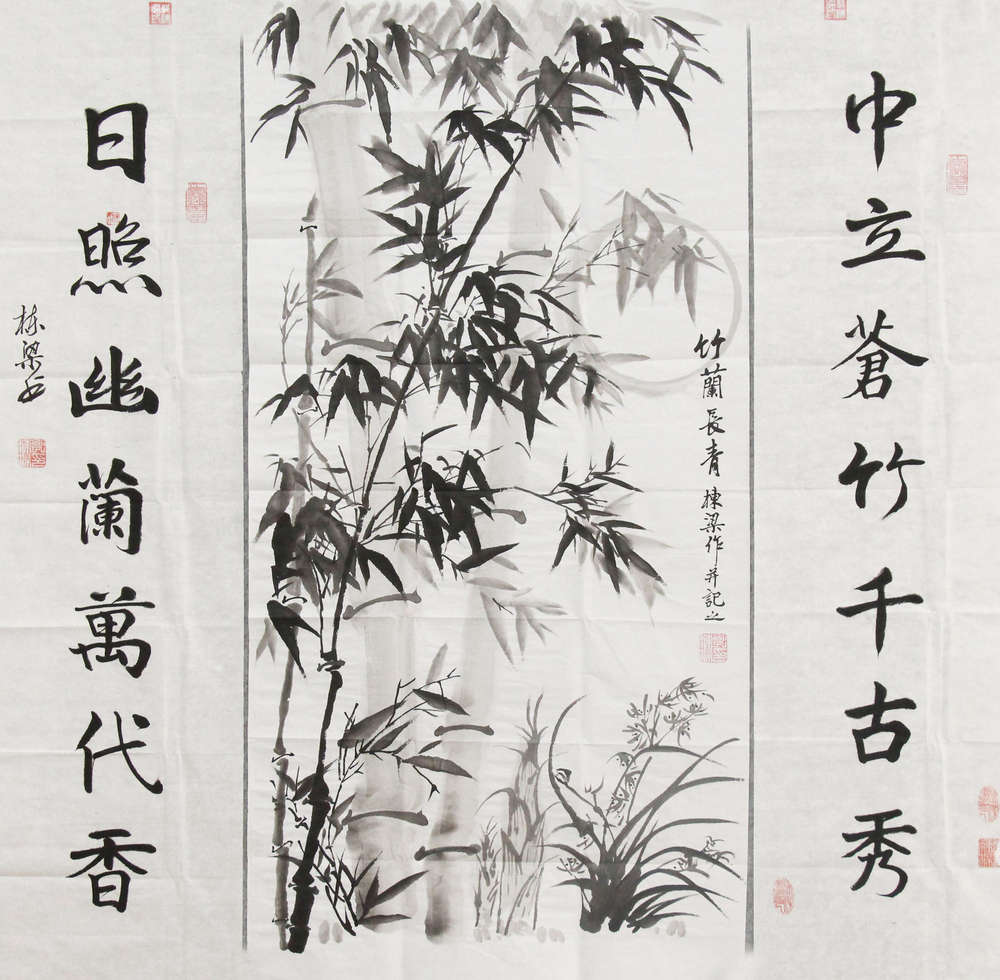 中立蒼竹千古秀
竹蘭長青 棟梁作并記之
日照幽蘭萬代香
栋梁书